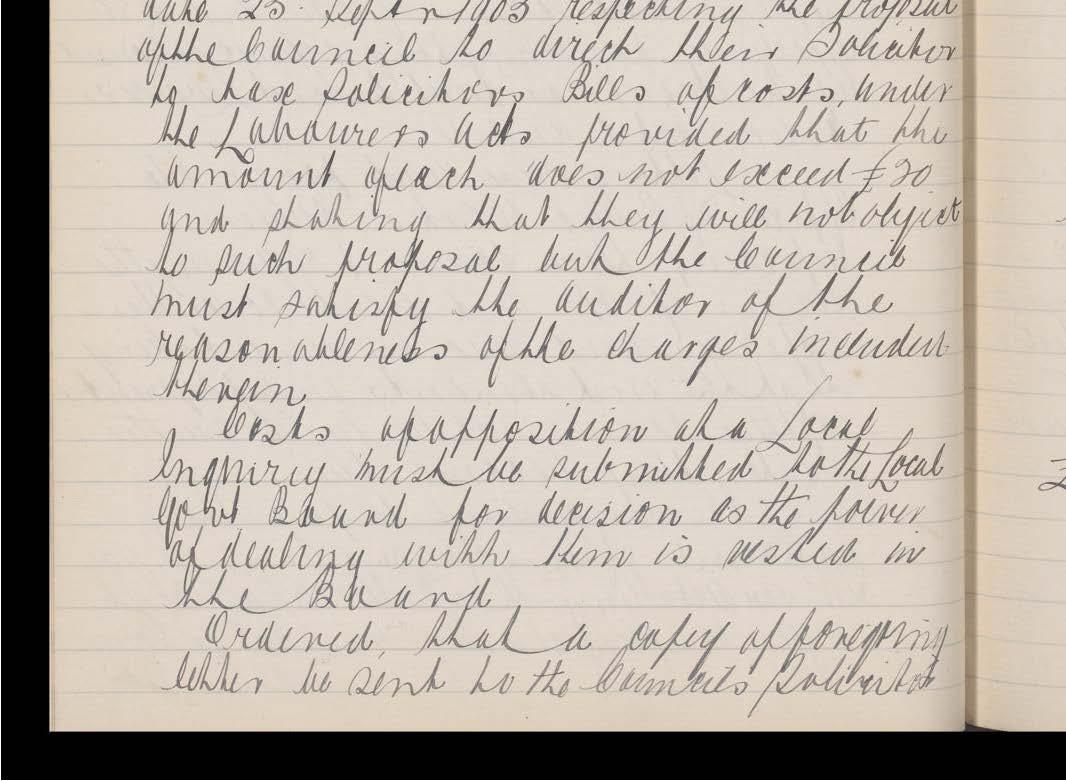 date 23. Septr 1903 respecting the proposal
of the Council to direct their Solicitor
to tax Solicitors Bills of costs, under
the Labourers Acts provided that the
amount of each does not exceed £20
and stating that they will not object
to such proposal but the Council
must satisfy the Auditor of the
reasonableness of the charges included
therein.
Costs of opposition at a Local
Inquiry must be submitted to the Local
Govt Board for decision as the power
of dealing with them is vested in
the Board
Ordered, that a copy of foregoing
letter be sent to the Councils Solicitor